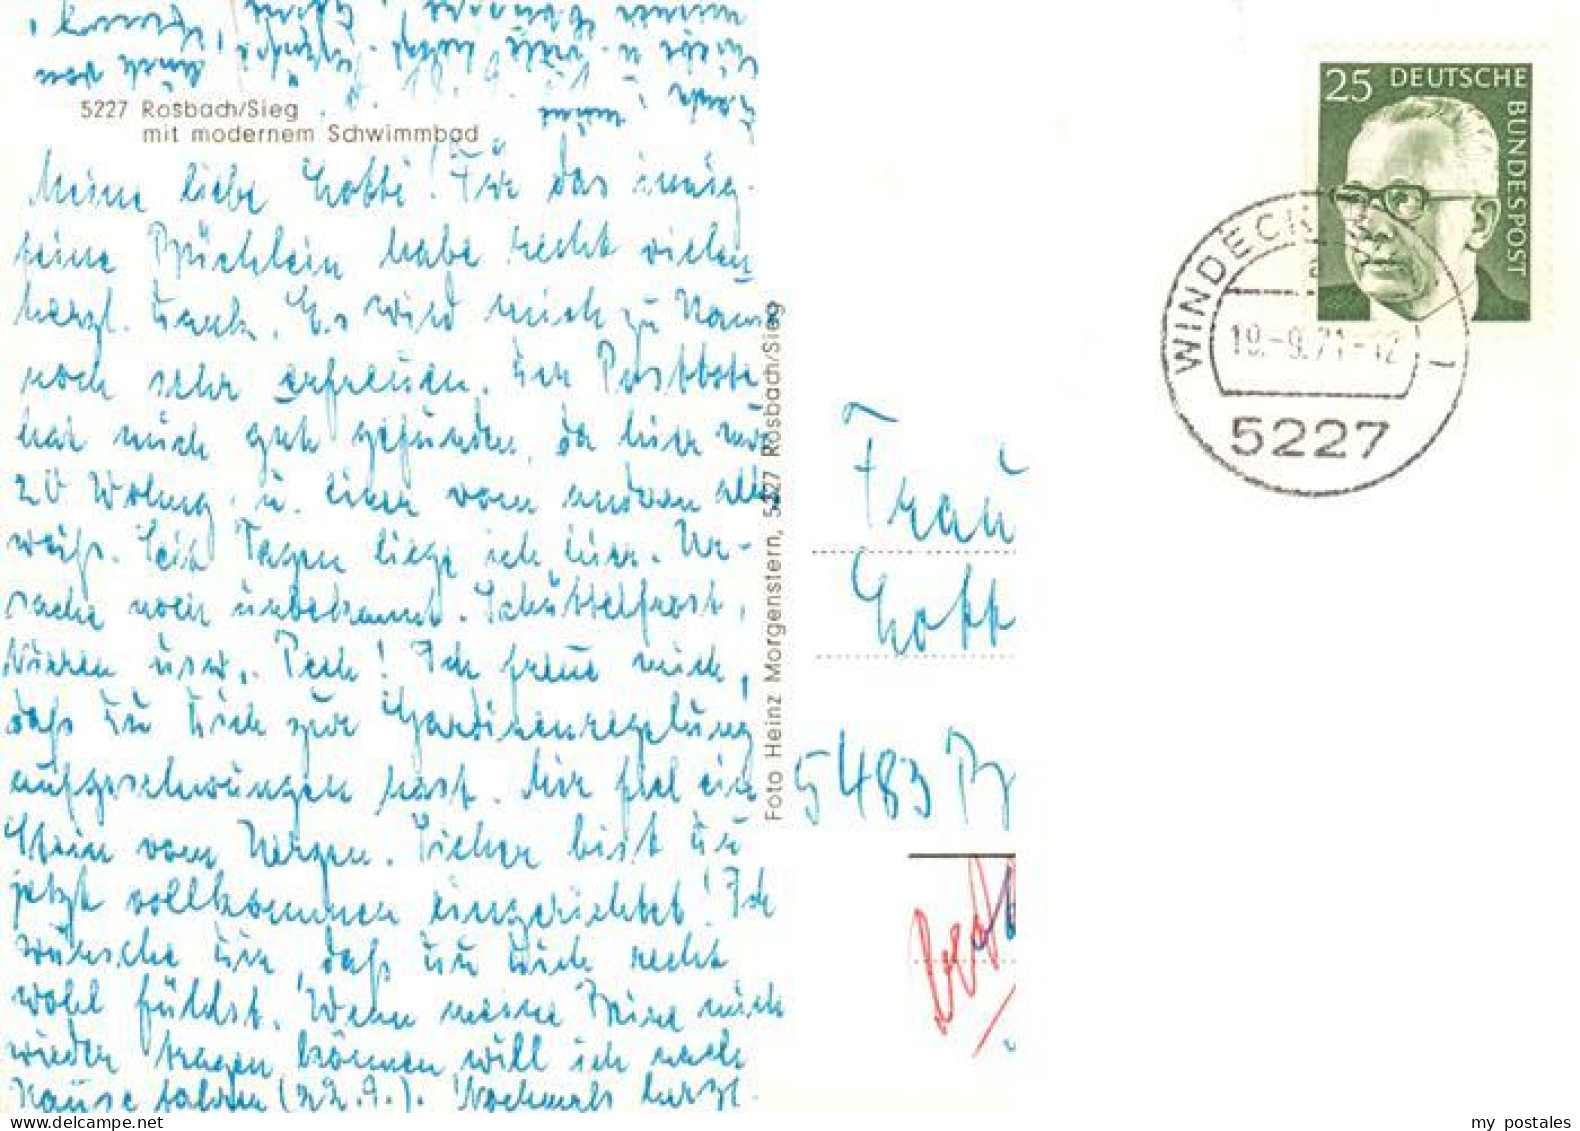 5227 Rosbach/Sieg
mit modernem Schwimmbad
Meine liebe Lotti! Für das innig-
feine Büchlein habe recht vielen
herzl. Dank. Es wird mich zu Haus
noch sehr erfreuen. Der Postbote
hat mich gut gefunden, da hier nur
20 Wohng. u. einer vom andern alles
weiß. Seit Tagen liege ich hier. Ur-
sache noch unbekannt. Schüttelfrost,
Nieren usw. Pech! Ich freue mich,
daß Du Dich zur Gardinenregelung
aufgeschwungen hast. Mir fiel ein
Stein vom Herzen. Sicher bist Du
jetzt vollkommen eingerichtet! Ich
wünsche Dir, daß Du Dich recht
wohl fühlst. Wenn meine Beine mich
wieder tragen können will ich nach
Hause fahren (22.9.). Nochmals herzl.
Foto Heinz Morgenstern, 5227 Rosbach/Sieg
25 DEUTSCHE
BUNDESPOST
WINDECK 1
a
19.-9.71-12
5227
Frau
Lott
5483 B
my postales